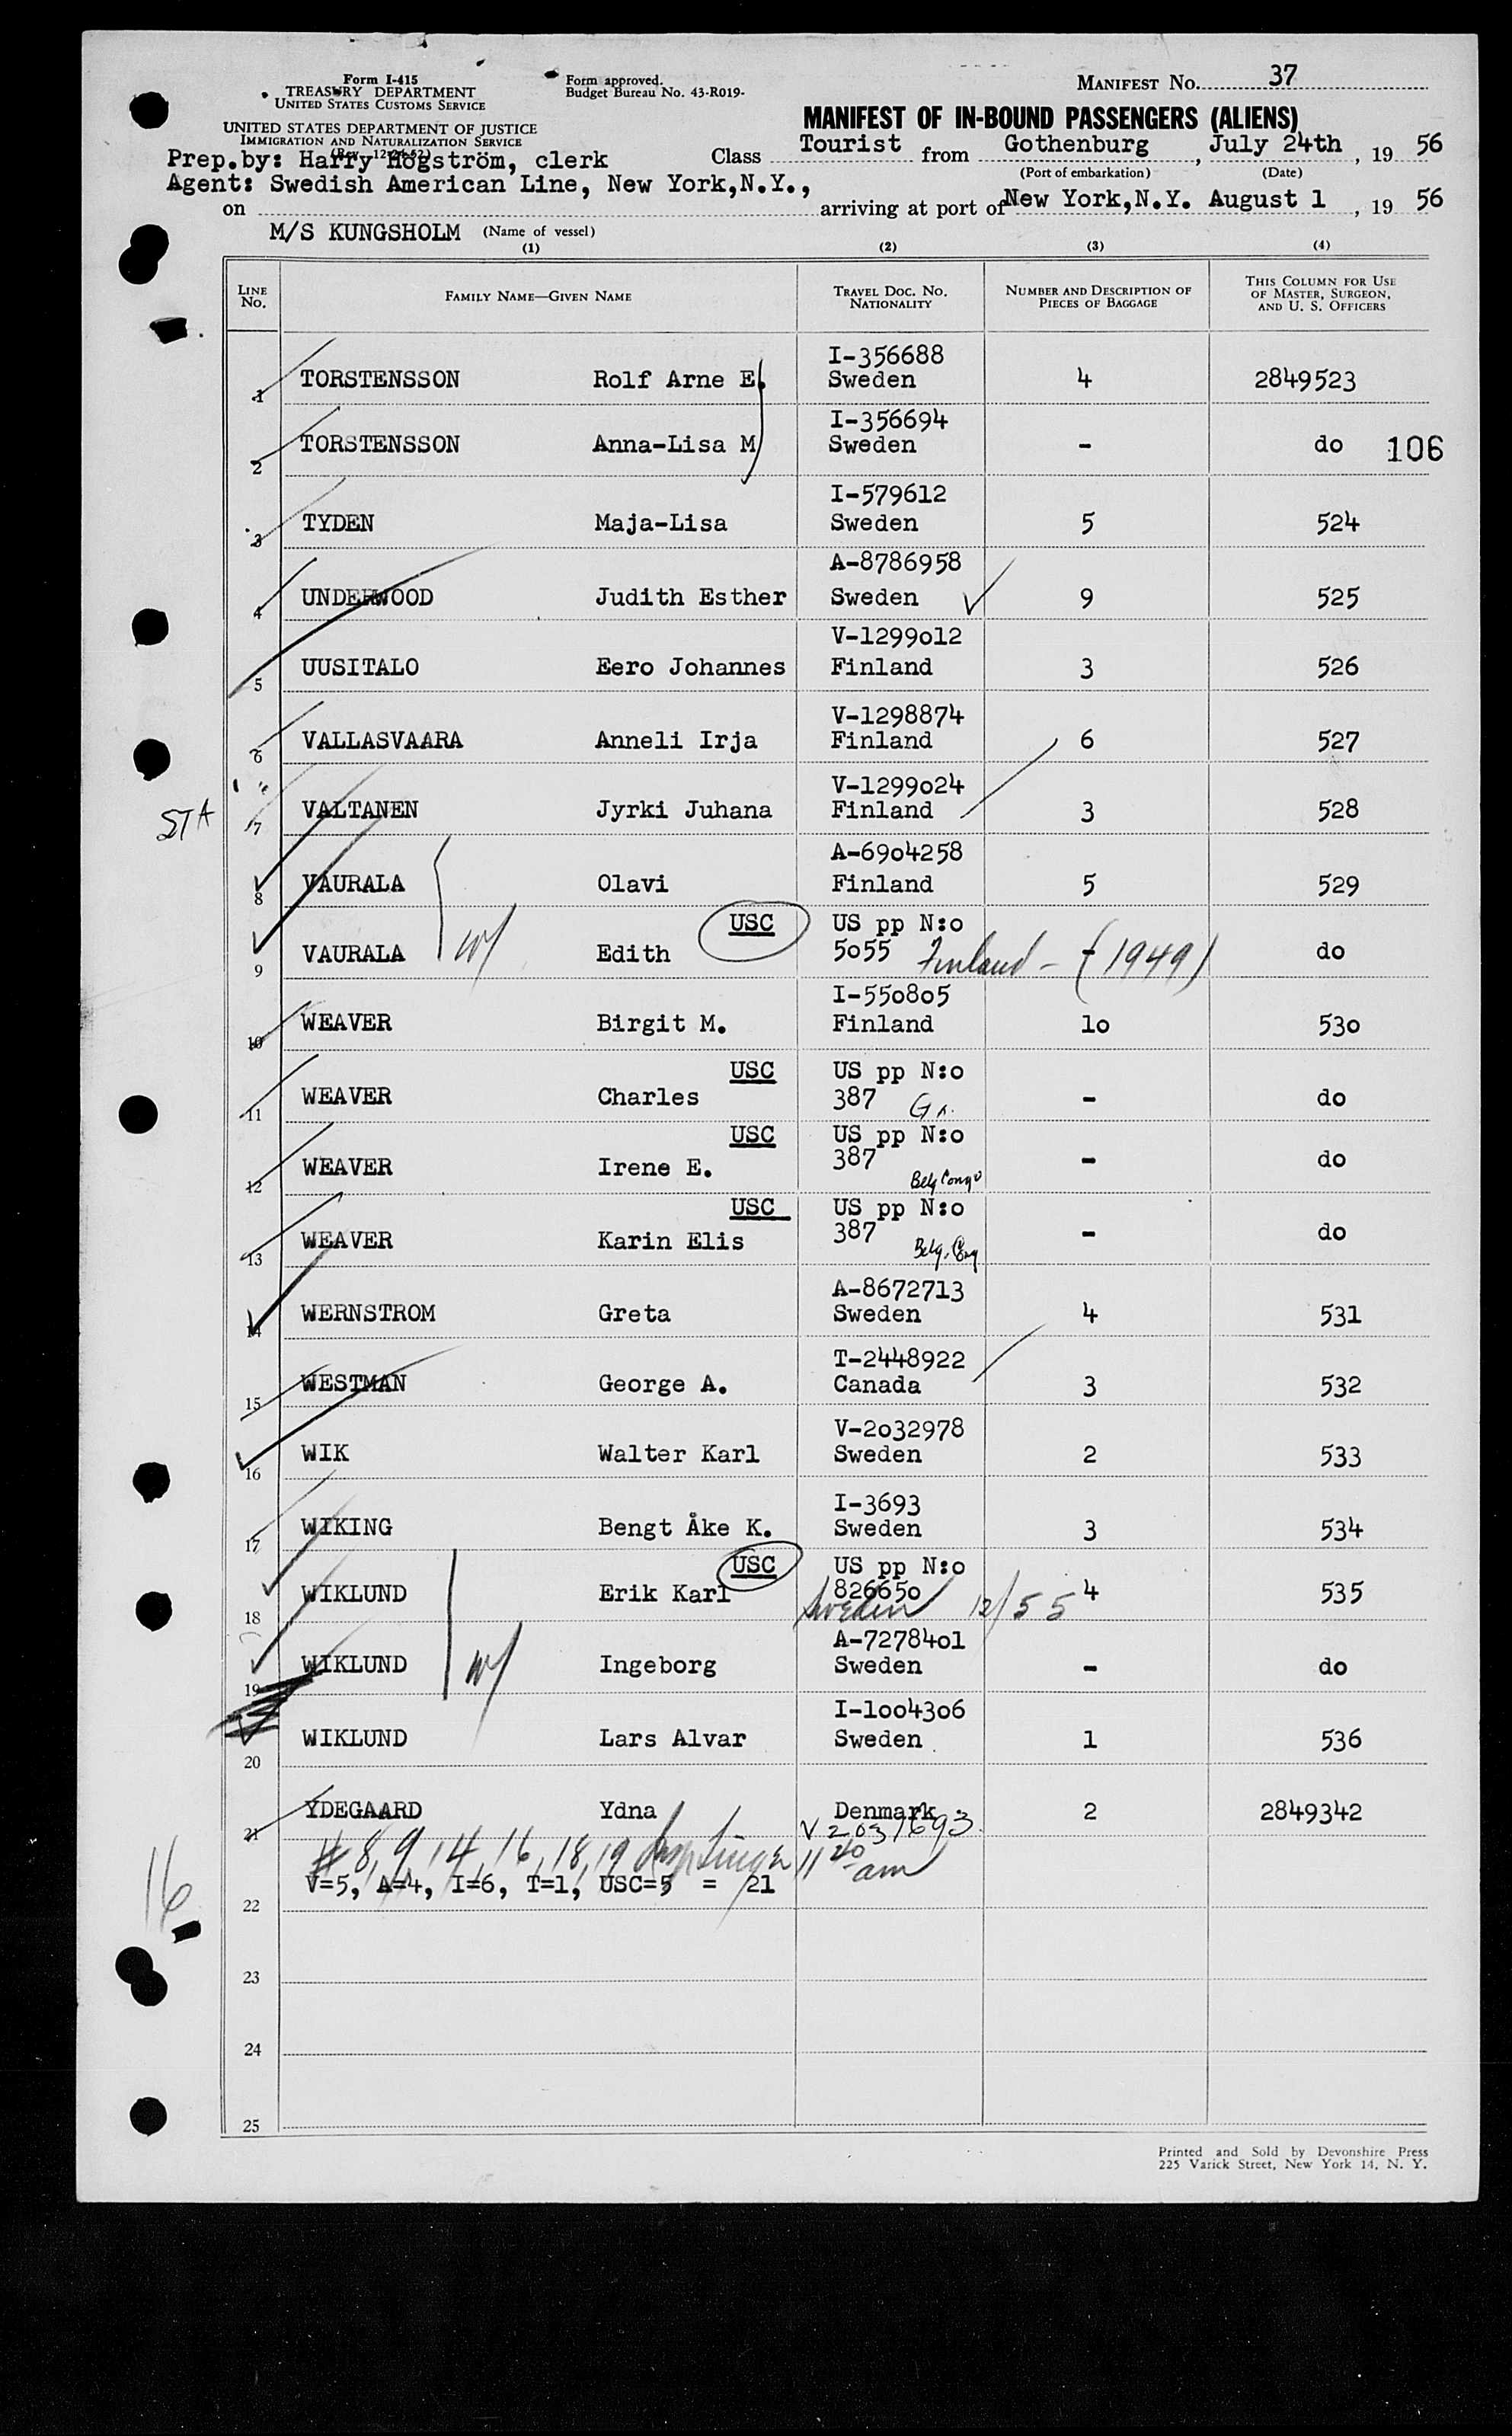 Form I-415
TREASURY DEPARTMENT
UNITED STATES CUSTOMS SERVICE
Form approved.
Budget Bureau No. 43-R019-
MANIFEST NO. 37
UNITED STATES DEPARTMENT OF JUSTICE
IMMIGRATION AND NATURALIZATION SERVICE
(Rev. 12-24-52)
MANIFEST OF IN-BOUND PASSENGERS (ALIENS)
Prep.by: Harry Högström, clerk
Class Tourist from Gothenburg, July 24th, 19 56
(Port of embarkation) (Date)
Agent: Swedish American Line, New York,N.Y.,
on arriving at port of New York,N.Y. August 1, 19 56
M/S KUNGSHOLM (Name of vessel)
(1) (2) (3) (4)
LINE NO. FAMILY NAME—GIVEN NAME TRAVEL DOC. NO. NATIONALITY NUMBER AND DESCRIPTION OF PIECES OF BAGGAGE THIS COLUMN FOR USE OF MASTER, SURGEON, AND U. S. OFFICERS
I-356688
1 TORSTENSSON Rolf Arne E. Sweden 4 2849523
I-356694
2 TORSTENSSON Anna-Lisa M Sweden - do 106
I-579612
3 TYDEN Maja-Lisa Sweden 5 524
A-8786958
4 UNDERWOOD Judith Esther Sweden 9 525
V-1299o12
5 UUSITALO Eero Johannes Finland 3 526
V-1298874
6 VALLASVAARA Anneli Irja Finland 6 527
V-1299o24
STA 7 VALTANEN Jyrki Juhana Finland 3 528
A-69o4258
8 VAURALA Olavi Finland 5 529
USC US pp N:o
9 VAURALA w/ Edith 5o55 Finland - - (1949) do
I-55o8o5
10 WEAVER Birgit M. Finland 1o 53o
USC US pp N:o
11 WEAVER Charles 387 - do
USC US pp N:o
12 WEAVER Irene E. 387 Belg Congo - do
USC US pp N:o
13 WEAVER Karin Elis 387 Belg. Cong - do
A-8672713
14 WERNSTROM Greta Sweden 4 531
T-2448922
15 WESTMAN George A. Canada 3 532
V-2o32978
16 WIK Walter Karl Sweden 2 533
I-3693
17 WIKING Bengt Åke K. Sweden 3 534
USC US pp N:o
18 WIKLUND Erik Karl 82665o 4 535
Sweden 12/55
A-72784o1
19 WIKLUND w/ Ingeborg Sweden - do
I-1oo43o6
20 WIKLUND Lars Alvar Sweden 1 536
21 YDEGAARD Ydna Denmark 2 2849342
V 2031693
# 8, 9, 14, 16, 18, 19 11 20 am
V=5, A=4, I=6, T=1, USC=5 = 21
16
22
23
24
25
Printed and Sold by Devonshire Press
225 Varick Street, New York 14, N. Y.